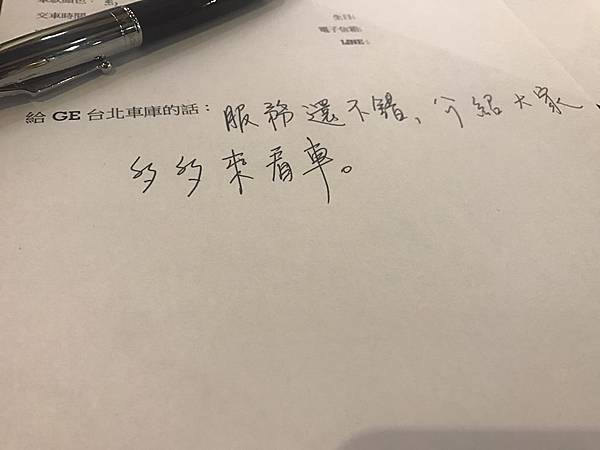 車款顏色：黑
交車時間
生日:
電子信箱:
LINE :
給 GE 台北車庫的話： 服務還不錯，介紹大家，
多多來看車。